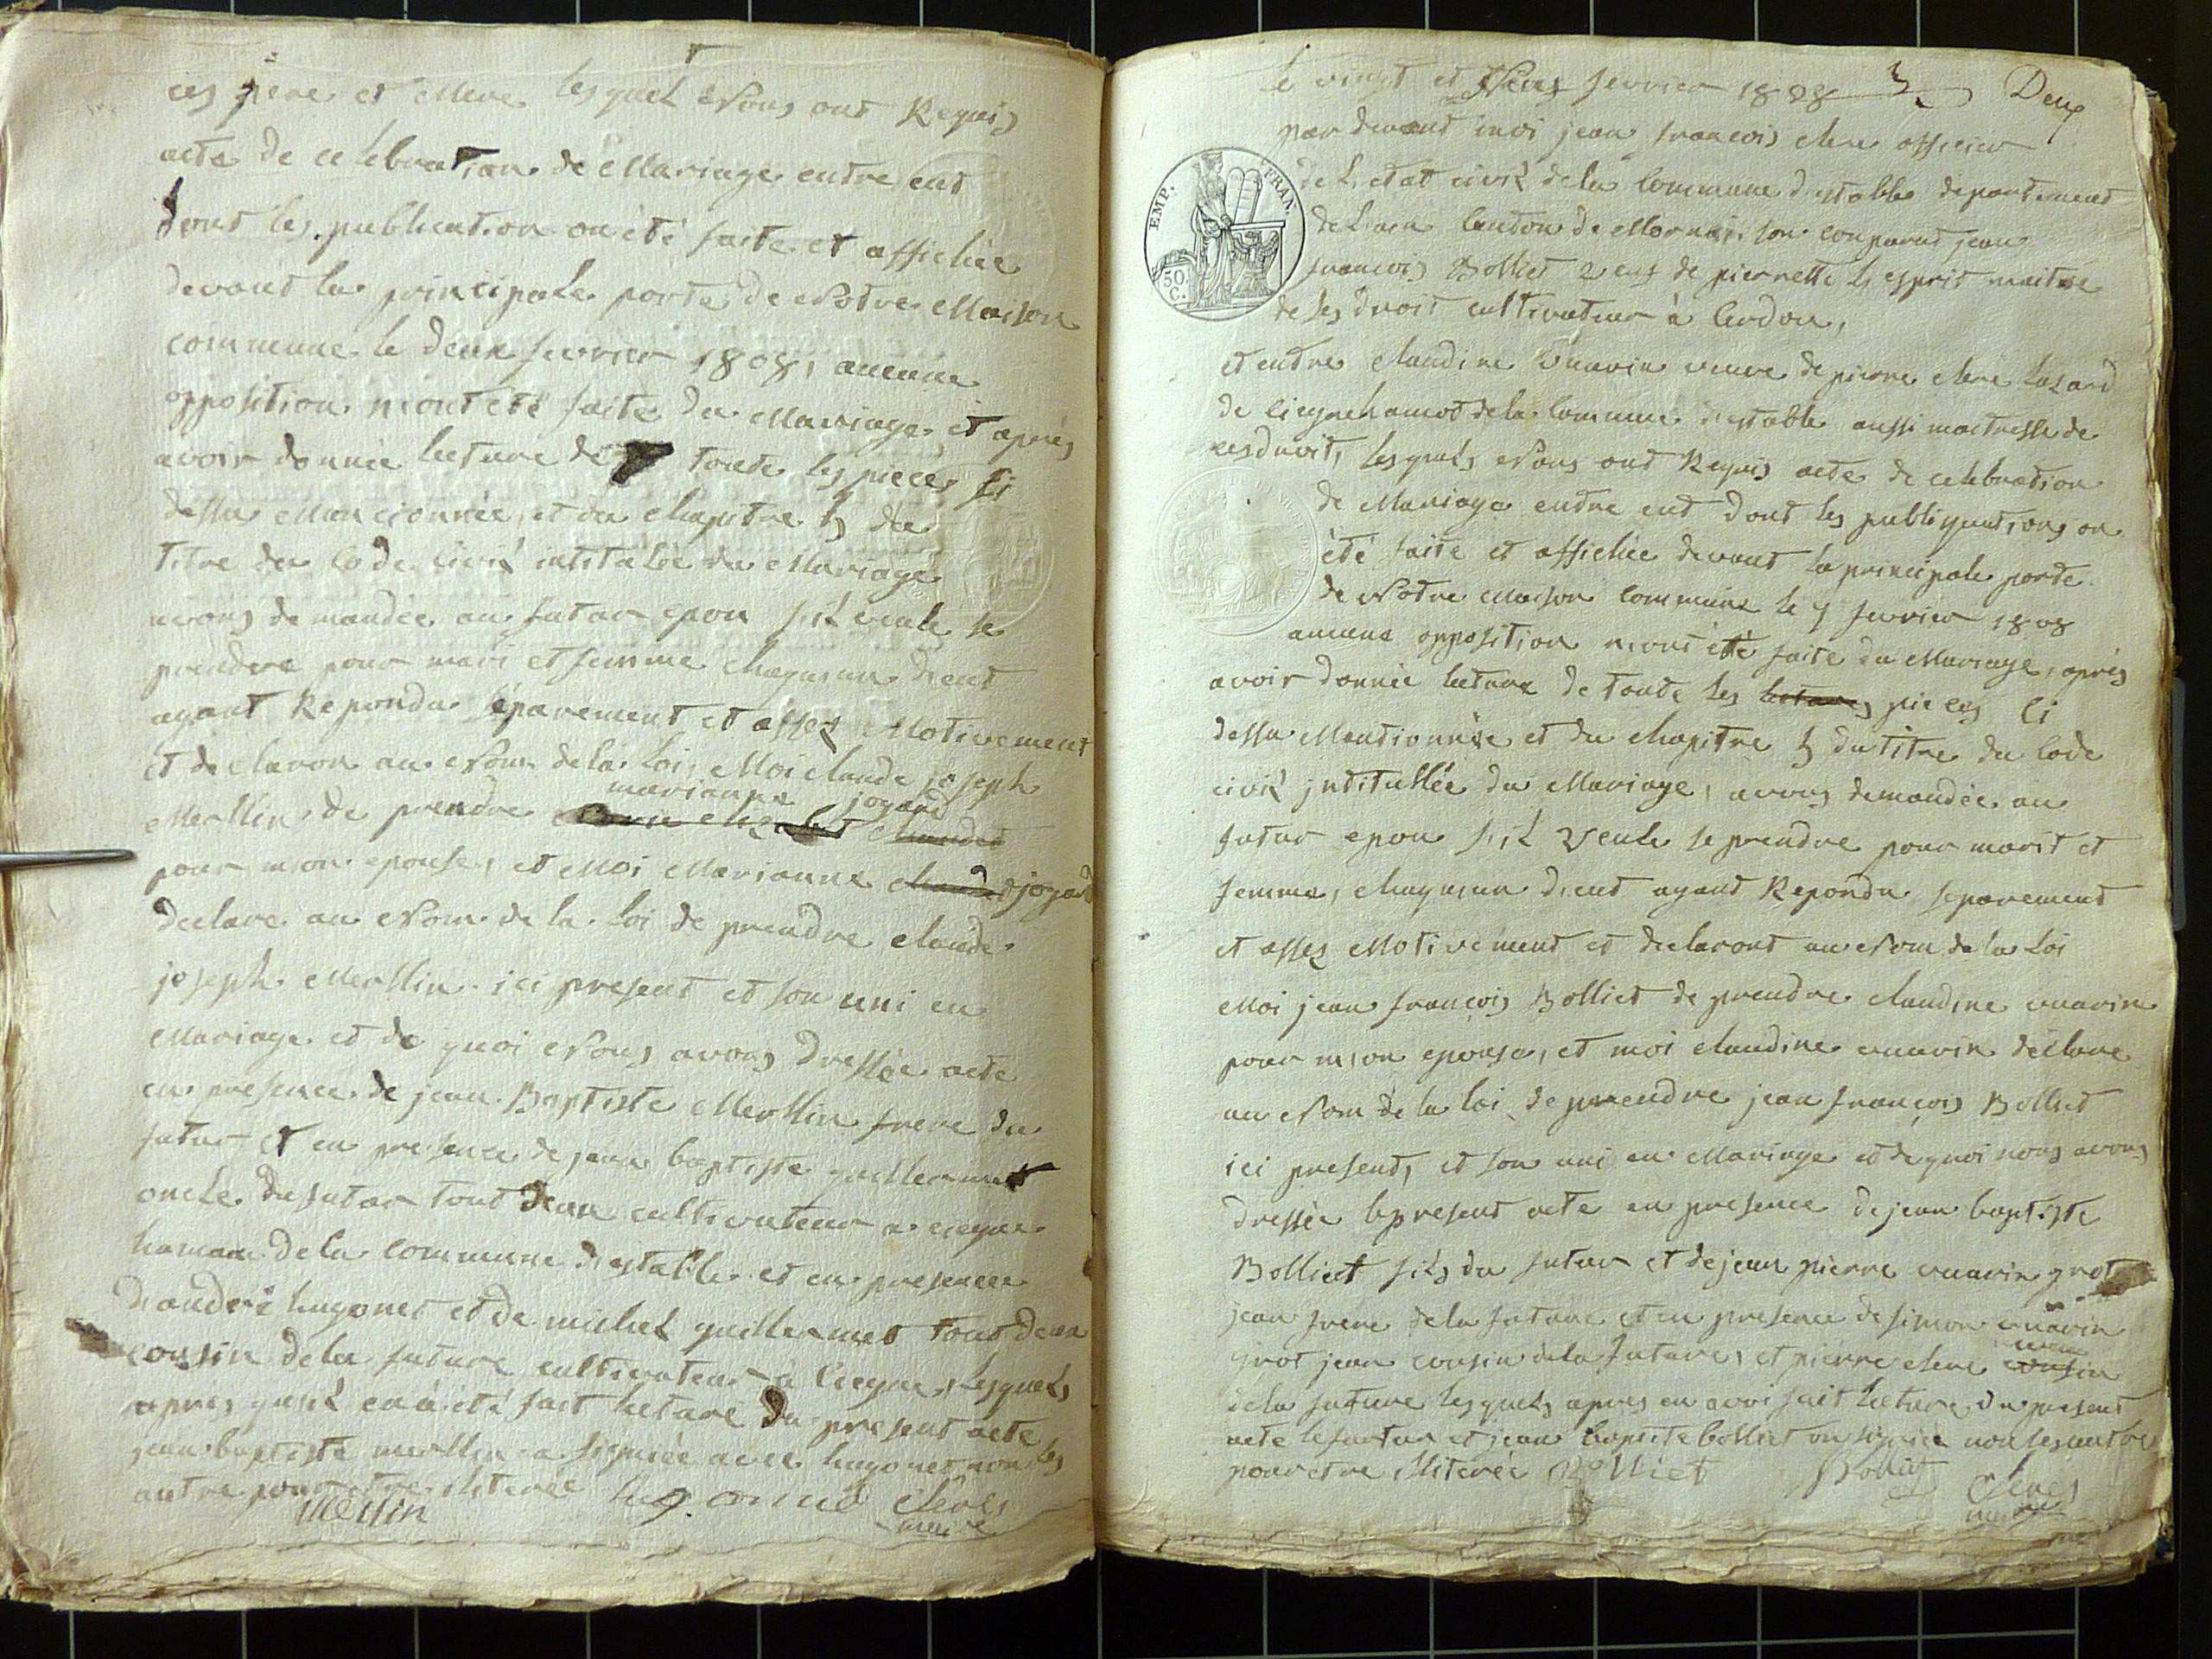 ces pere et Mere lesquel Nous ont Requis
acte de celebration de Mariage entre eut
dont les publication on été faite et affichée
devant la principale porte de Notre Maison
commune le deux fevrier 1808, aucune
opposition n'ont été faite du Mariage, et après
avoir donnée lecture de toute les pieces ci
dessu Mancionnée, et du chapitre 5 du
titre du Code Civil intitulée du Mariage
avons demandée au futur epou s'il veule se
prendere pour mari et femme chaqun un d'eut
ayant Repondu séparement et assez Motivement
et declaron au Nom de la Loi, Moi claude joseph
marianne joyard
Merllin de prendre
pour mon epouse, et Moi Marianne joyard
declare au Nom de la Loi de prendre claude
joseph Merllin ici present et son uni en
Mariage et de quoi Nous avons Dressée acte
en presence de jean Baptiste Merllin frere du
futur et en presence de jean baptiste guillermet
oncle du futur tout deux cultivateur a ciegne
hamau de la commune d'estable et en presence
d'andré hugonet et de michel guillermet tout deux
cousin de la future cultivateur à Ciegne, lesquels
apres qu'il en à été fait lecture Du present acte
jean baptiste merllin a signée avec hugonet non les
autre pour etre iliterée hugonnet clere
Merllin maire
le vingt et Neuf fevrier 1808 Deux
par devant moi jean francois clere officier
de L'etat civil de la Commune d'estable departement
de L'ain Canton de son conparus jean
EMP. FRAN.
50 C.
francois Bolliet veuf de pierrette L'esprit maitre
de ses droit cultivateur à Cerdon,
et entre claudine vuarin veuve de pierre clere
de Ciegne hamot de la Commune d'estable aussi maitresse de
ces droit, lesquels Nous ont Requis acte de celebration
de Mariage entre eut dont les publiquations on
été faite et affichée devant la principale porte
de Notre Maison Commune le 7 fevrier 1808
aucune opposition n'ont été faite du Mariage, après
avoir donnée lecture de toute les lectures pieces Ci
dessu Mentionnée et du chapitre 5 du titre du Code
civil jntitullée du Mariage, avons demandée au
futur epou s'il veule se prendre pour marit et
femme, chaqun un d'eut ayant Repondu separement
et assez Motivement et declaront au Nom de la Loi
Moi jean françois Bolliet de prendre claudine vuarin
pour mon epouse, et moi claudine vuarin déclare
au Nom de la loi de prendre jean françois Bolliet
ici present, et son uni en Mariage et de quoi nous avons
dressée le present acte en presence de jean baptiste
Bolliet fils du futur et de jean pierre vuarin grot
jean frere de la future et en presence de simon vuarin
grot jean cousin de la future, et pierre clere cousin
de la future lesquels apres en avoi fait lecture du present
acte le futur et jean baptiste bolliet on signée non les autre
pour etre iliterée Bolliet Bolliet Clere
maire